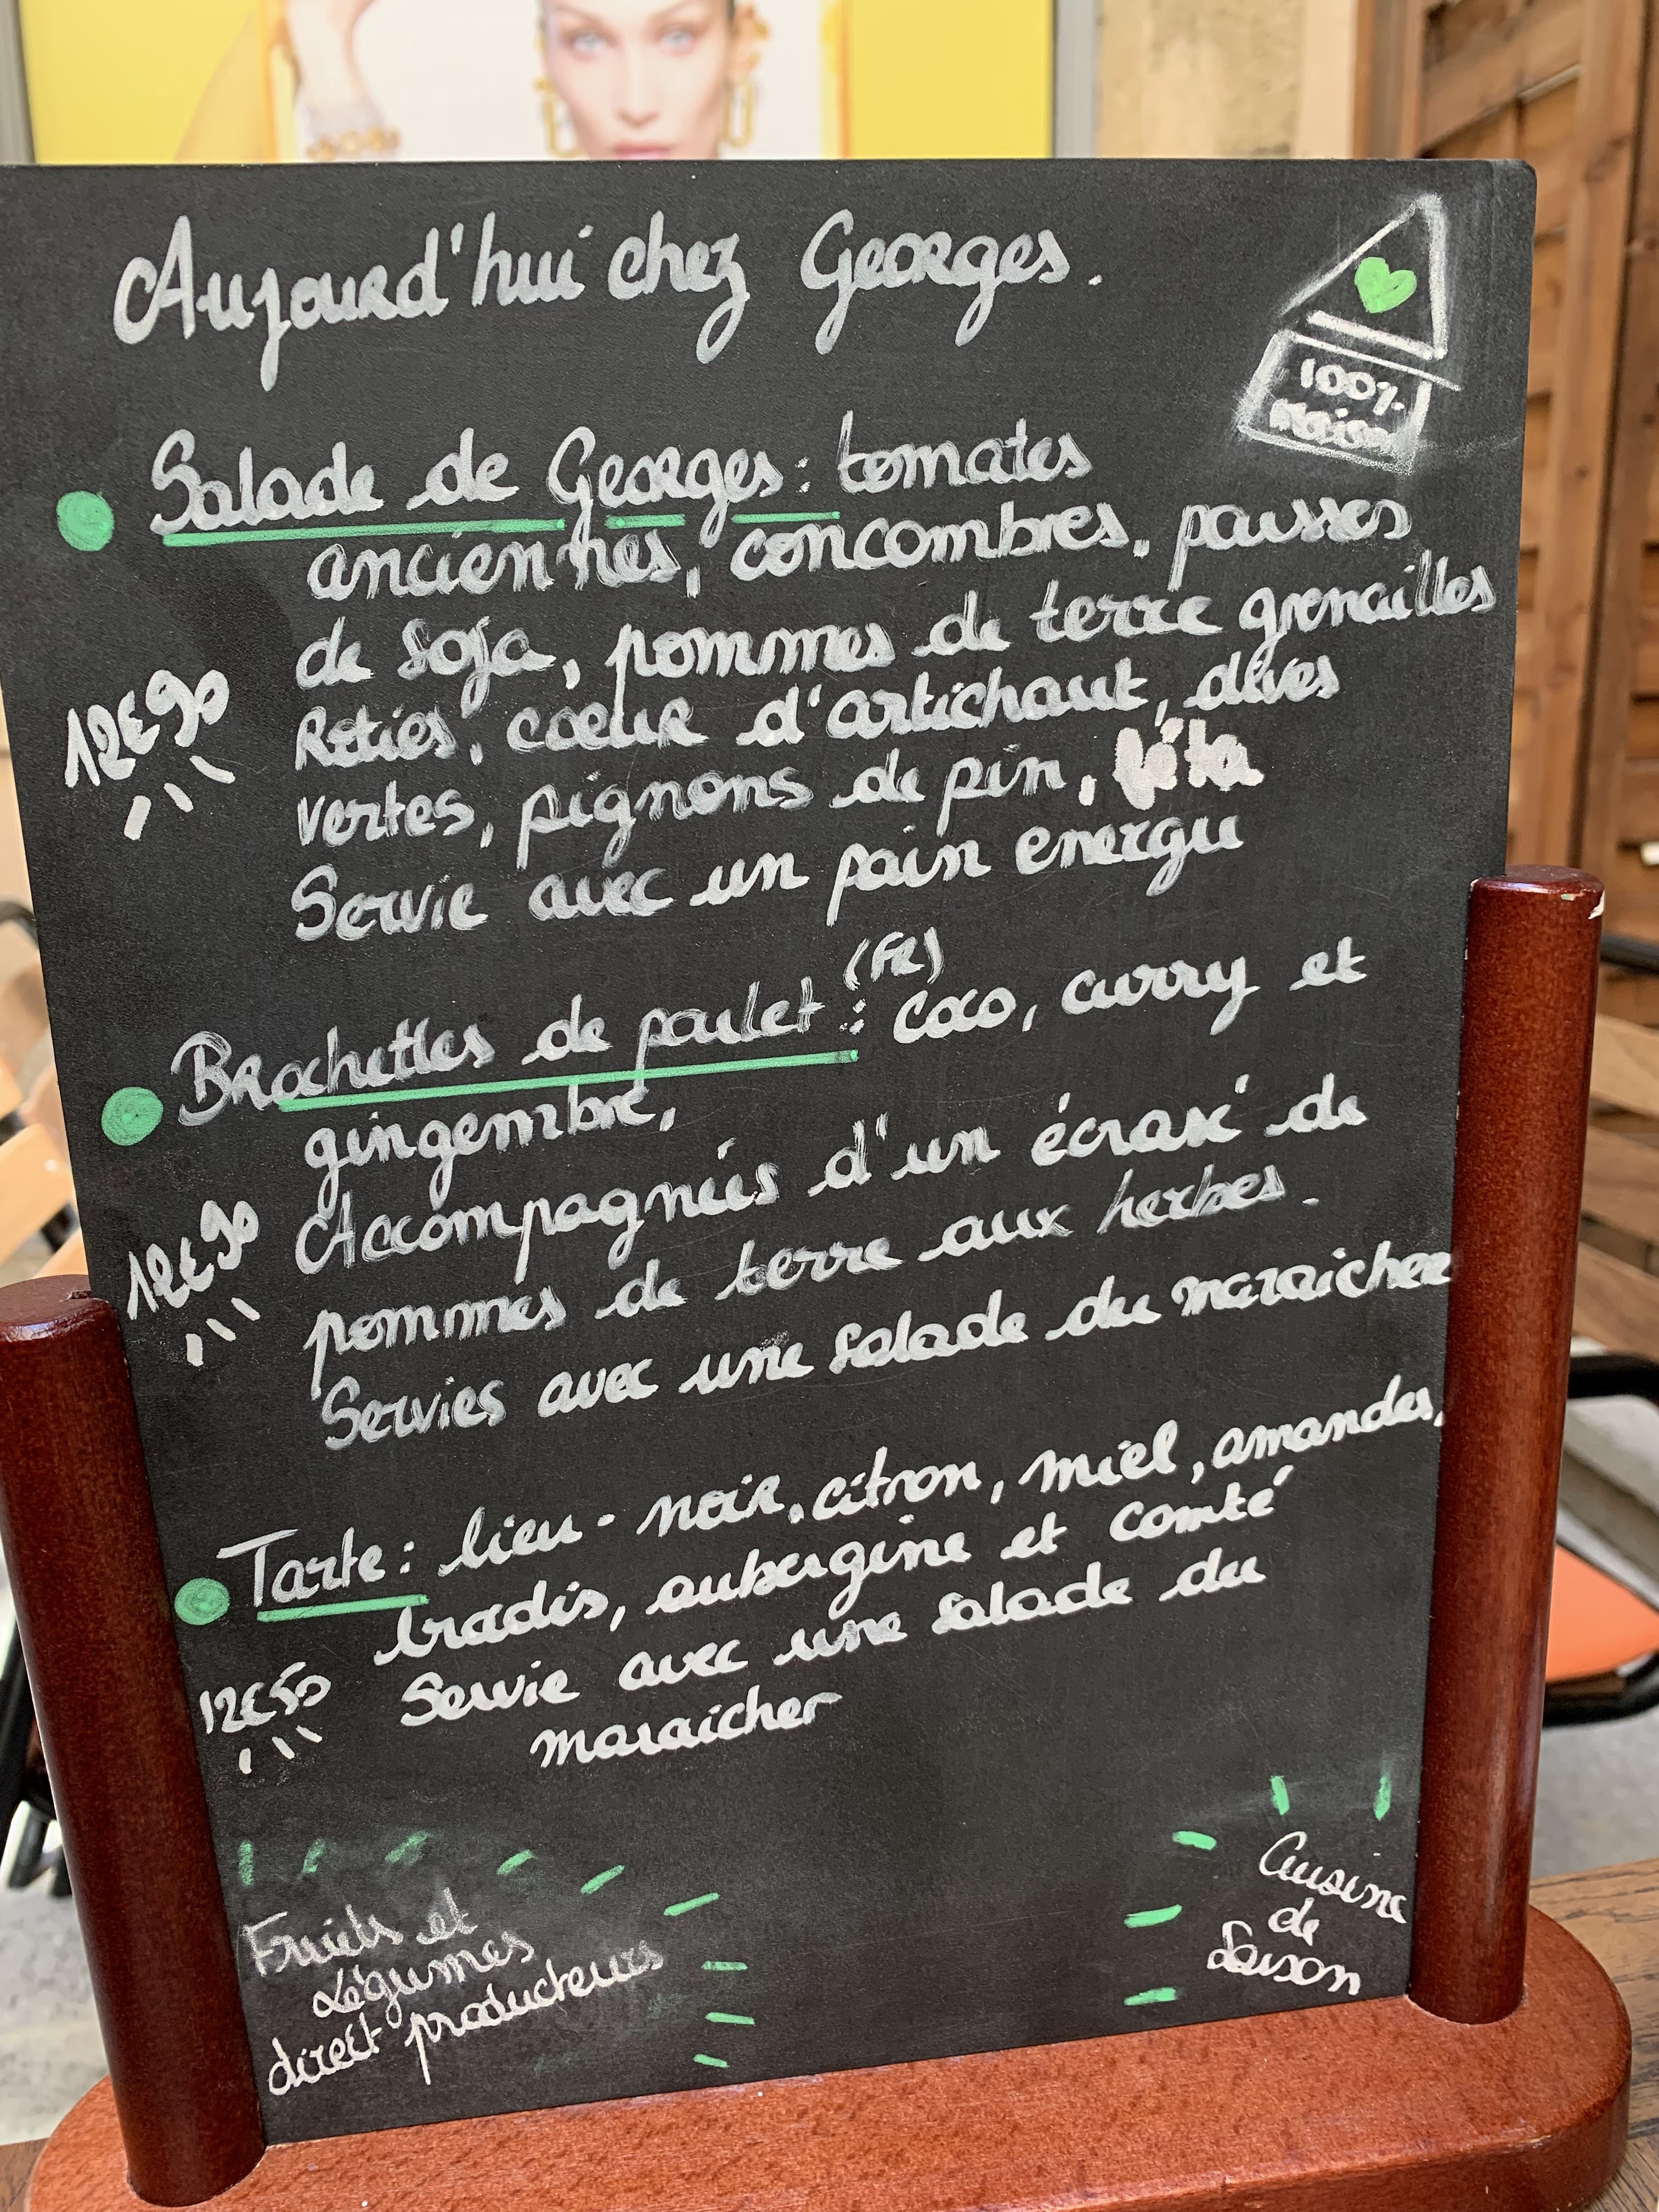 Aujourd'hui chez Georges.
100%
Maison
Salade de Georges : tomates
anciennes, concombres, pousses
de soja, pommes de terre grenailles
Roties, coeur d'artichaut, olives
vertes, pignons de pin, féta
Servie avec un pain energu
12€90
Brochettes de poulet (FR) : coco, curry et
gingembre,
Accompagnées d'un écrasé de
pommes de terre aux herbes.
Servies avec une salade du maraicher
12€90
Tarte : lieu-noir, citron, miel, amandes,
radis, aubergine et comté
Servie avec une salade du
maraicher
12€50
Fruits et
Légumes
direct producteurs
Cuisine
de
Saison